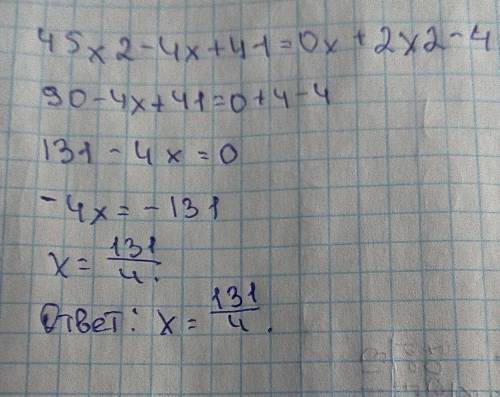 45x2-4x+41=0x+2x2-4
90-4x+41=0+4-4
131-4x=0
-4x=-131
x=131/4.
Ответ: x=131/4.